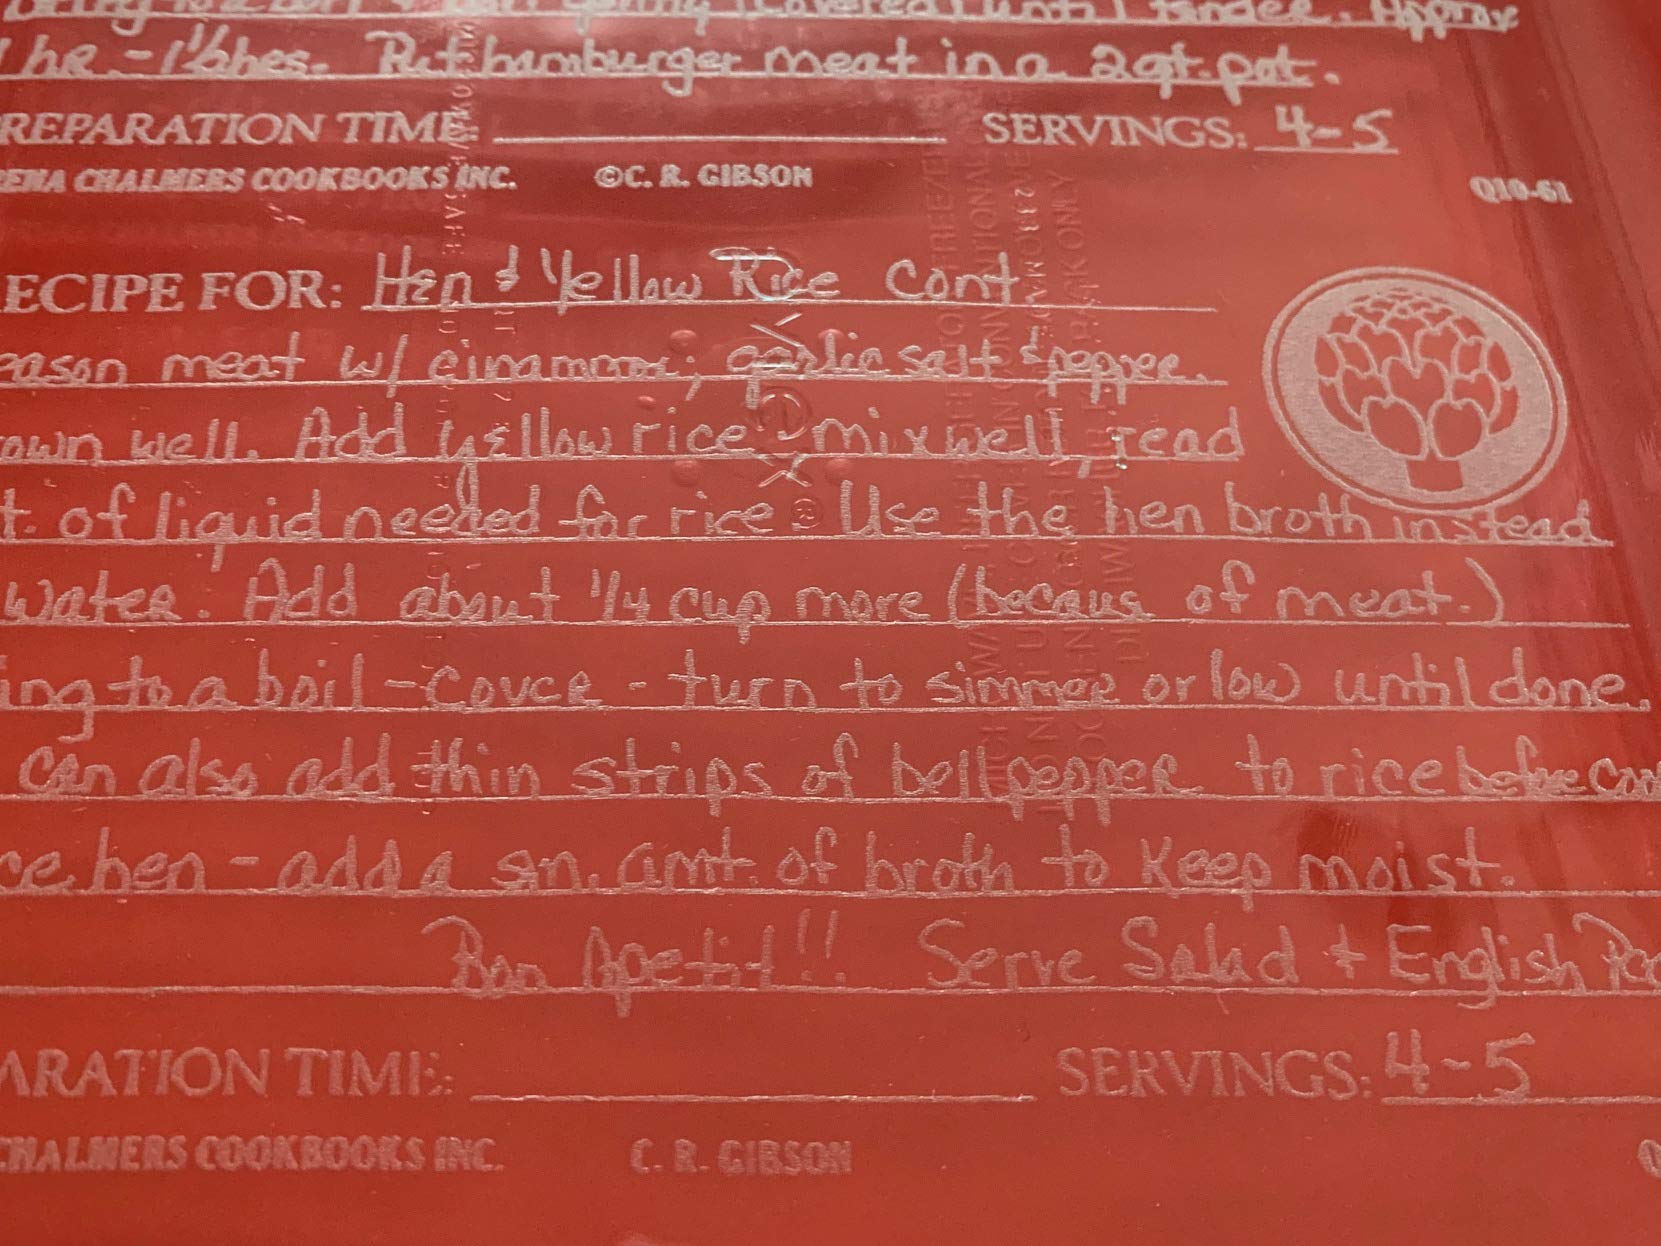 to a boil (covered) until tender. Approx
1 hr. - 1½ hrs. Put hamburger meat in a 2 qt. pot.
REPARATION TIME: SERVINGS: 4-5
RENA CHALMERS COOKBOOKS INC. ©C. R. GIBSON Q10-61
ECIPE FOR: Hen & Yellow Rice Cont
eason meat w/ cinammon, garlic salt & pepper.
own well. Add yellow rice - mix well, read
t. of liquid needed for rice. Use the hen broth instead
water. Add about 1/4 cup more (becaus of meat.)
ing to a boil - cover - turn to simmer or low until done.
can also add thin strips of bell pepper to rice before coo
ce hen - add a sm. amt. of broth to keep moist.
Bon Apetit!! Serve Salad & English Pea
ARATION TIME: SERVINGS: 4-5
CHALMERS COOKBOOKS INC. C. R. GIBSON
Pyrex®